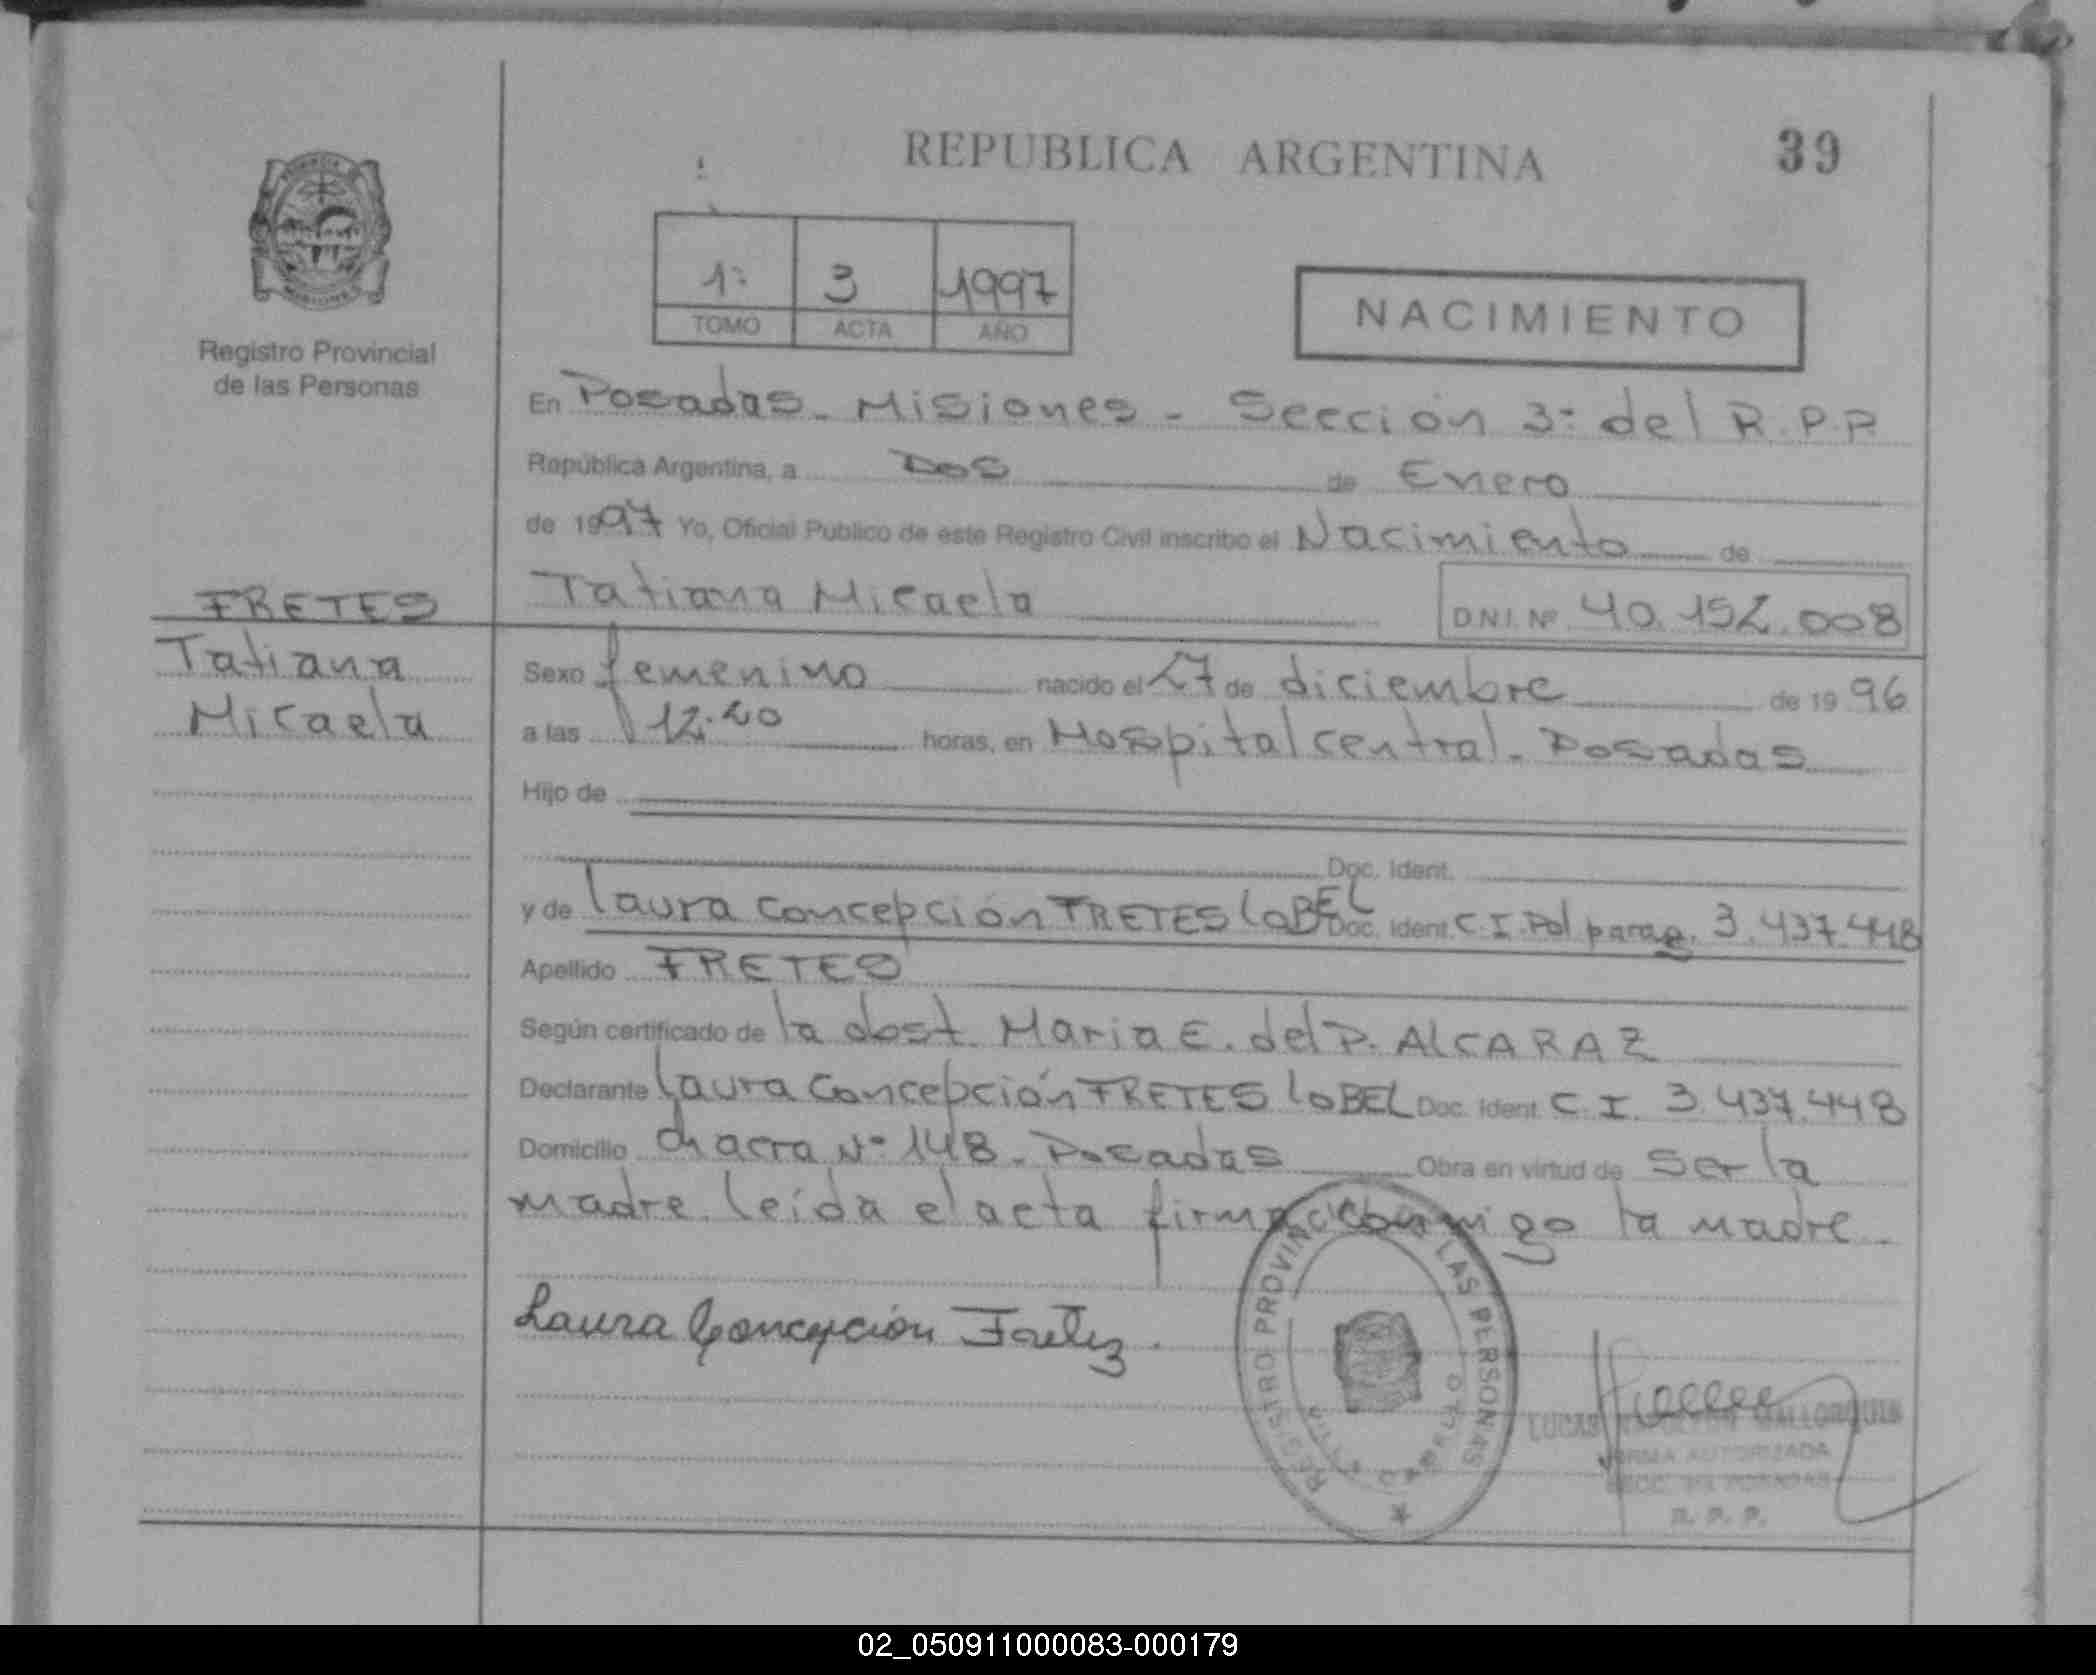 REPUBLICA ARGENTINA
39
1º 3 1997
TOMO ACTA AÑO
NACIMIENTO
Registro Provincial
de las Personas
En Posadas - Misiones - Sección 3º del R.P.P.
República Argentina, a Dos de Enero
de 1997 Yo, Oficial Publico de este Registro Civil inscribo el Nacimiento de
Tatiana Micaela D.N.I. Nº 40.152.008
FRETES
Tatiana
Micaela
Sexo femenino nacido el 27 de diciembre de 1996
a las 12.20 horas, en Hospital central - Posadas
Hijo de
Doc. Ident.
y de Laura Concepción FRETES LOBEL Doc. Ident. C.I. Pol parag. 3.437.448
Apellido FRETES
Según certificado de la obst. Maria E. del P. ALCARAZ
Declarante Laura Concepción FRETES LOBEL Doc. Ident. C.I. 3.437.448
Domicilio Chacra Nº 148 - Posadas Obra en virtud de Ser la
madre. leída el acta firma conmigo la madre.
Laura Concepción Fretez.
REGISTRO PROVINCIAL LAS PERSONAS
LUCAS MALLORQUIN
FIRMA AUTORIZADA
SECC. 3ra POSADAS
R. P. P.
02_050911000083-000179